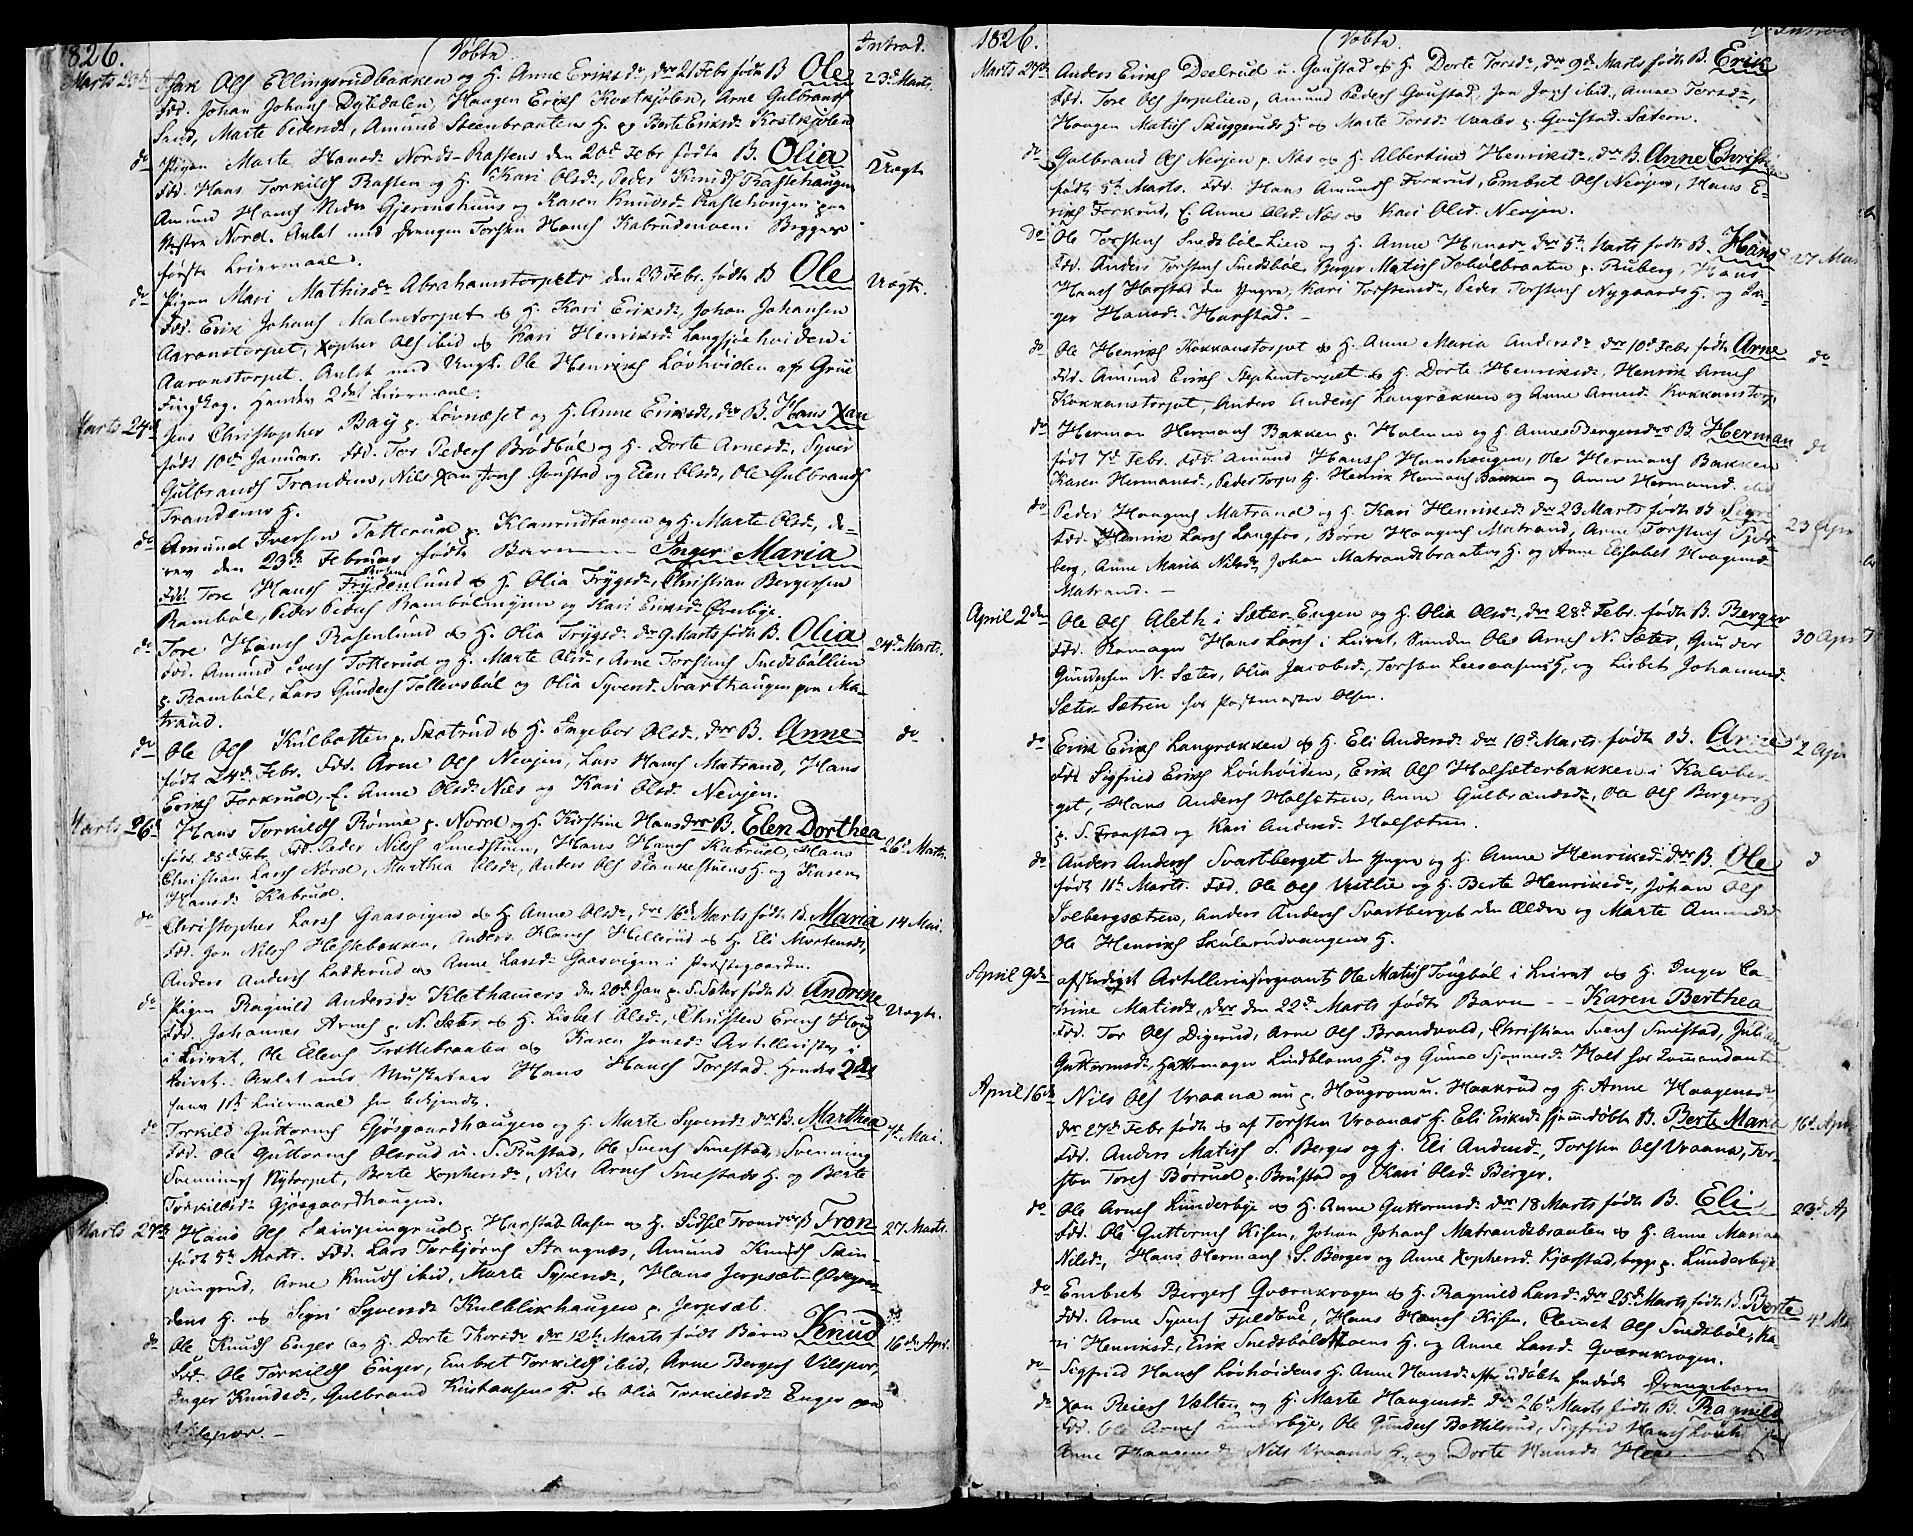 1826. Döbte Introd.
Marts 20de Isak Ols Ellingsrudbakken og H. Anne Eriksdr, der 21 Febr fødte B Ole 23de Marts.
Fdd. Johan Johans Dybdalen, Haagen Eriks Kostkjølen, Arne Gulbrands
Sand, Marte Pedersdr, Amund Steenbraatens H. og Berte Eriksdr Kostkjølen
do Pigen Marte Hansdr Nords-Rastens den 20de Febr fødte B. Olia Uægte
Fdd. Hans Torkilds Rasten og H. Kari Olsdr, Peder Knuds Rastehaugen
Amund Hans Nedre Gjermshuus og Karen Knudsdr Rastehaugen paa
Nord. Avlet med Drengen Torsten Hans Kabrudmoen. Begges
første Leiermaal.
do Pigen Mari Mathisdr Abrahamstorpets den 23 Febr. fødte B Ole Uægte.
Fdd. Erik Johans Malmtorpet og H. Kari Eriksdr, Johan Johansen
Aaronstorpet, Xopher Ols ibid og Kari Henriksdr Langsjøehviden i
Aaronstorpet. Avlet med Ungk. Ole Henriks Løvhöiden af Grue
Findskog. Hendes 2det Leiermaal.
Marts 24de Jens Christopher Bay p. Lövnæset og H. Anne Eriksdr, der B. Hans Xan
født 10de Januar. Fdd. Tor Peders Brødbøl og H. Dorte Arnesdr, Syver
Gulbrands Trandem, Nils Xan Jons Goustad og Elen Olsdr, Ole Gulbrands
Trandems H.
do Amund Iversen Tatterud p. Klanrudtangen og H. Marte Olsdr, de-
rev den 23de Februar fødte Barn Inger Maria
Fdd. Tore Hans Frydenlund og H. Olia Trygsdr, Christian Bergersen
Rambøl, Peder Peders Rambølmyren og Kari Eriksdr Øverbye.
do Tore Hans Rosenlund og H. Olia Trygsdr der 9 Marts fødte B. Olia 24de Marts.
Fdd. Amund Ivers Totterud og H. Marte Olsdr, Arne Torstens Snedsböllien
p. Rambøl, Lars Gunders Tollevsbøl og Olia Syversd. Svarthaugen paa Ma-
trand.
do Ole Ols Kulbotten p. Skotrud og H. Ingebor Olsdr, der B. Anne do
født 24de Febr. Fdd. Arne Ols Nevjen, Lars Hans Matrand, Hans
Eriks Forkrud, E. Anne Olsdr Næs og Kari Olsdr Nevjen.
Marts 26de Hans Torkilds Rönne p. Nord og H. Kirstine Hansdr der B. Elen Dorthea 26de Marts.
født d5de Febr. Fdd. Peder Nils Smedstuen, Hans Hans Kabrud, Hans
Christian Lars Nord, Marthea Olsdr, Anders Ols Plankestuens H. og
Hansdr Kabrud.
do Christopher Lars Gaasvigen og H. Anne Olsdr, der 16de Marts fødte B. Maria 14 Mai.
Fdd. Jon Nils Hestebækken, Anders Hans Hellerud og H. Eli Mortensdr,
Anders Anders Ladderud og Anne Larsdr Gaasvigen i Præstegaarden.
do Pigen Ragnild Andersdr Klethamers den 20de Jan p. S. Sæter fødte B. Andrine Uægte.
Fdd. Johannes Arnes p. N. Sæter og H. Lisbet Olsdr, Christen Evens Haug
i Leiret, Ole Ellens Trættebraaten og Karen Jonsdr Artillerister i
Leiret. Avlet med Musketeer Hans Hans Torstad. Hendes 2det
hans 1ste Leiermaal saa bekjendt.
do Torkild Guttorms Gjøsgaardhaugen og H. Marte Syversdr der B. Marthea 7de Mai.
Fdd. Ole Guttorms Olerud u. S. Rustad, Ole Svens Smestad, Svenning
Svennings Nytorpet, Berte Xophersdr, Nils Arnes Smestads H. og Berte
Torkildsdr Gjøsgaardhaugen.
Marts 27de Hans Ols Lampingrud p. Harstad Aasen og H. Sidsel Tronsdr B. Tron 27 Marts.
født 5te Marts. Fdd. Lars Torbjørns Stangnæs, Amund Knuds Lam-
pingrud, Arne Knuds ibid, Marte Syversdr, Hans Jerpsæt-
dens H. og Sigri Syversdr Kulblikhaugen p. Jerpsæt.
do Ole Knuds Enger og H. Dorte Thorsdr der 12te Marts født Barn Knud 16de Apr.
Fdd. Ole Torkilds Enger, Embret Torkilds ibid, Arne Bergers Vilspor,
Inger Knudsdr, Gulbrand Kristiansens H. og Olia Torkildsdr Enger paa
Vilspor.
1826. Döbte Introd
Marts 27de Anders Eriks Deelrud u. Goustad og H. Dorte Torsdr, der 9de Marts fødte B. Erik
Fdd. Tore Ols Jerpelien, Amund Peders Goustad, Jon Jons ibid, Anne Torsdr,
Haagen Matis Skuggeruds H. og Marte Torsdr Vaaler p. Goustad-Sætern.
do Gulbrand Ols Nevjen p. Næs og H. Albertine Henriksdr, der B. Anne Christine
født 5te Marts. Fdd. Hans Amunds Forkrud, Embret Ols Nevjen, Hans E-
riks Forkrud, E. Anne Olsd. Næs og Kari Olsd. Nevjen.
Do Ole Torstens Snedsböl-Lien og H. Anne Hansdr der 5te Marts fødte B. Hans 27 Mar
Fdd. Anders Torstens Snedsböl, Berger Matis Tobölbraaten p. Ruberg, Hans
Hans Harstad den Yngre, Kari Torstensdr, Peder Torstens Nygaards H. og In-
ger Hansdr Harstad.
do Ole Henriks Kokkanstorpet og H. Anne Maria Andersdr der 10de Febr fødte Arne do
Fdd. Amund Eriks Stephentorpet og H. Dorte Henriksdr, Henrik Arnes
Kokkanstorpet, Anders Anders Langrækken og Anne Arnesd. Kokkanstorp
do Herman Hermans Bakken p. Holmen og H. Anne Bergersdr der B Herman do
født 7de Febr. Fdd. Amund Hans Hanshaugen, Ole Hermans Bakken
Karen Hermansd., Peder Torps H. Henrik Hermans Bakken og Anne Hermansd. ibid
do Peder Haagens Matrand og H. Kari Henriksdr der 23 Marts fødte B Sigri 23 Apr
Fdd. Henrik Lars Langfos, Børre Haagens Matrand, Arne Torstens Fjeld-
berg, Anne Maria Nilsdr, Johan Matrandsbraatens H. og Anne Elisabet Haagensd
Matrand.
April 2den Ole Ols Aleth i Sæter Engen og H. Olia Olsdr, der 28de Febr. fødte B. Berger 30 Apr
Fdd. Skomager Hans Lars i Leiret, Svenden Ole Arnes N. Sæter, Gunder
Gundersen N. Sæter, Olia Jacobsd., Torsten H, og Lisbet Johannesd.
Sæter-Sætren hos Postmester Olsen.
do Erik Eriks Langrækken og H. Eli Andersdr der 10de Marts fødte B. Arne 2 Apr
Fdd Sigfried Eriks Lövhöiden, Erik Ols Holsæterbakken i Kalvber-
get, Hans Anders Holsætren, Anne Gulbrandsdr, Ole Ols Bergers H
p. S. Fronstad og Kari Andersd. Holsætren.
do Anders Anders Svartberget den Yngre og H. Anne Henriksdr der B. Ole
født 11te Marts. Fdd. Ole Ols Vestlie og H. Berte Henriksdr, Johan Ols
Solbergsætren, Anders Anders Svartberget den Ældre og Marte Amundsd
Ole Henriks Skulerudvangens H.
April 9de afskediget Artilleriesergeant Ole Matis Tougböl i Leiret og H. Inger Ca-
trine Matisdr, der den 22de Marts fødte Barn — Karen Berthea
Fdd. Tor Ols Digerud, Arne Ols Brandvold, Christian Svens Smestad, Juliane
Guttormsdr, Hattemager Lindbloms H. og Gunne Simensd. Holt hos Commandant
April 16de Nils Ols Vraana nu p. Haugrom u. Haakrud og H. Anne Haagensdr
der 27de Febr fødte og af Torsten Vraanas H. Eli Eriksdr hjemmedøbte B. Berte Maria 16de Apr
Fdd. Anders Matis S. Berger og H. Eli Andersdr, Torsten Ols Vraana, Tor-
sten Tores Børrud p. Brustad og Kari Olsdr Berger.
do Ole Arnes Lunderbye og H. Anne Guttormsdr der 18 Marts fødte B. Eli 23de Ap
Fdd. Ole Guttorms Kisen, Johan Johans Matrandsbraaten og H. Anne Maria
Nilsdr, Hans Hermans S. Berger og Anne Xophersd. Kjærstad, begge p. Lunderbye
do Embret Bergers Qværnkrogen og H. Ragnild Larsdr der 25de Marts fødte B. Berte 4de Ma
Fdd. Arne Syvers Fjeldböe, Hans Hans Kisen, Clemet Ols Snedsböl, Ka-
ri Henriksdr, Erik Snedsböl Moens H. og Anne Larsd. Qværnkrogen.
do Sigfried Hans Lövhöidens H. Anne Hansdr udøbte Drengebarn
do Xan Reiers Valten og H. Marte Haagensdr der 26de Marts fødte B. Ragnild
Fdd. Ole Arnes Lunderbye, Ole Gunders Bottilsrud, Sigfrid Hans
Anne Haagensdr, Nils Vraanas H. og Dorte Hansdr